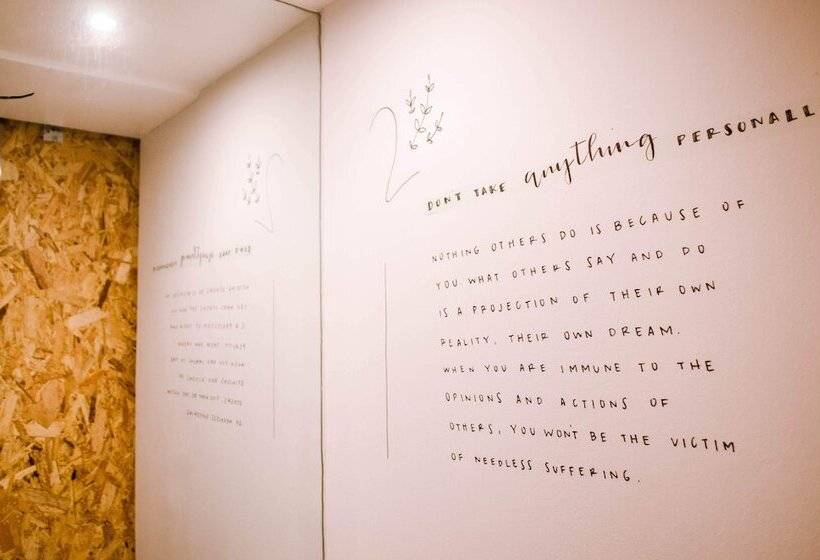 2
DONT TAKE anything PERSONALL
NOTHING OTHERS DO IS BECAUSE OF
YOU. WHAT OTHERS SAY AND DO
IS A PROJECTION OF THEIR OWN
REALITY, THEIR OWN DREAM.
WHEN YOU ARE IMMUNE TO THE
OPINIONS AND ACTIONS OF
OTHERS, YOU WONT BE THE VICTIM
OF NEEDLESS SUFFERING.